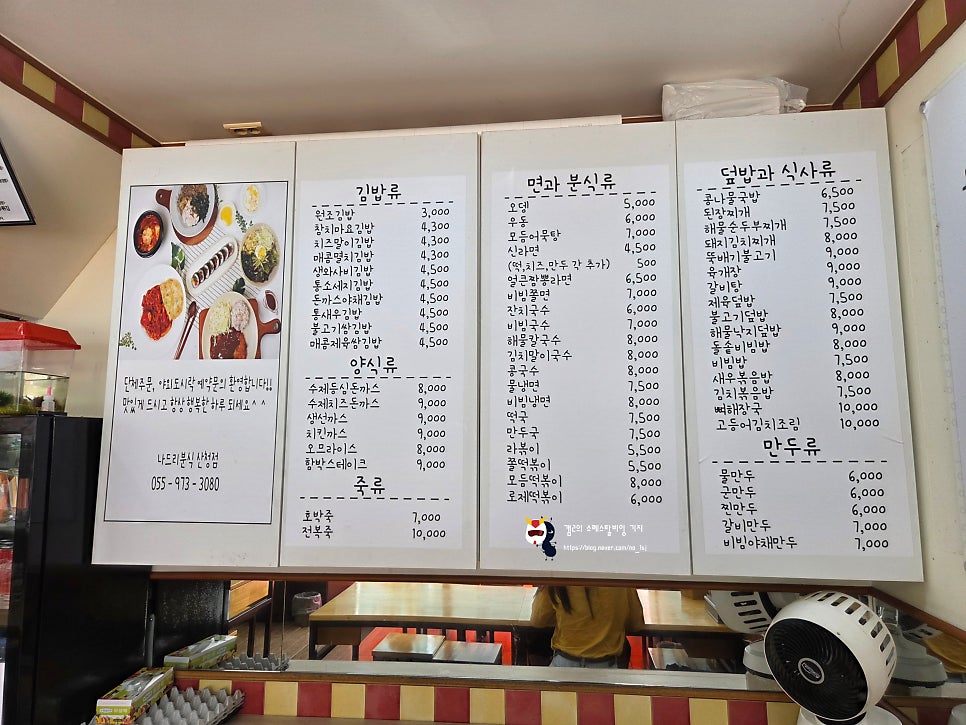 단체주문, 야외도시락 예약문의 환영합니다!!
맛있게 드시고 항상 행복한 하루 되세요^^
나드리분식 산청점
055-973-3080
김밥류
원조김밥 3,000
참치마요김밥 4,300
치즈말이김밥 4,300
매콤멸치김밥 4,300
생와사비김밥 4,500
통소세지김밥 4,500
돈까스야채김밥 4,500
통새우김밥 4,500
불고기쌈김밥 4,500
매콤제육쌈김밥 4,500
양식류
수제등심돈까스 8,000
수제치즈돈까스 9,000
생선까스 9,000
치킨까스 9,000
오므라이스 8,000
함박스테이크 9,000
죽류
호박죽 7,000
전복죽 10,000
면과 분식류
오뎅 5,000
우동 6,000
모듬어묵탕 7,000
신라면 4,500
(떡,치즈,만두 각 추가) 500
얼큰짬뽕라면 6,500
비빔쫄면 7,000
잔치국수 6,000
비빔국수 7,000
해물칼국수 8,000
김치말이국수 8,000
콩국수 8,000
물냉면 7,500
비빔냉면 8,000
떡국 7,500
만두국 7,500
라볶이 5,500
쫄떡볶이 5,500
모듬떡볶이 8,000
로제떡볶이 6,000
캠르의 소페스탈비잉 기지
https://blog.naver.com/no_1si
덮밥과 식사류
콩나물국밥 6,500
된장찌개 7,500
해물순두부찌개 7,500
돼지김치찌개 8,000
뚝배기불고기 9,000
육개장 9,000
갈비탕 9,000
제육덮밥 7,500
불고기덮밥 8,000
해물낙지덮밥 9,000
돌솥비빔밥 8,000
비빔밥 7,500
새우볶음밥 8,000
김치볶음밥 7,500
뼈해장국 10,000
고등어김치조림 10,000
만두류
물만두 6,000
군만두 6,000
찐만두 6,000
갈비만두 7,000
비빔야채만두 7,000